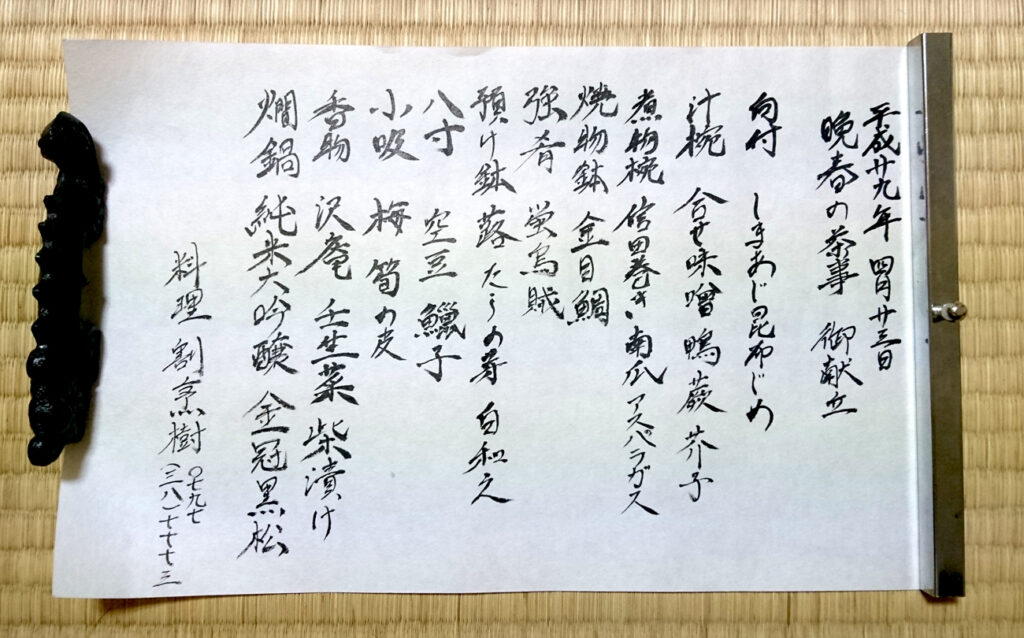 平成廿九年 四月廿三日
晩春の茶事 御献立
向付 しまあじ昆布じめ
汁椀 合せ味噌 鴨 蕨 芥子
煮物椀 信田巻き 南瓜 アスパラガス
焼物鉢 金目鯛
強肴 蛍烏賊
預け鉢 蕗 たらの芽 白和え
八寸 空豆 鱲子
小吸 梅 筍の皮
香物 沢庵 壬生菜 柴漬け
燗鍋 純米大吟醸 金冠黒松
料理 割烹樹
〇七九七
(三八)七七七三